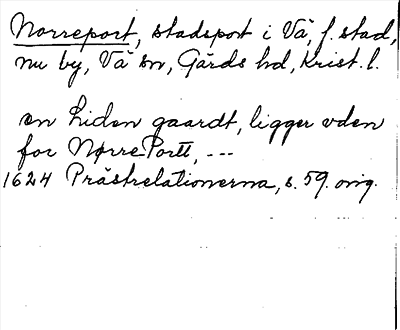 Norreport, stadsport i Vä, f. stad,
nu by, Vä sn, Gärds hd, Krist. l.
en Liden gaardt, ligger vden
for Nørre Portt, ---
1624 Prästrelationerna, s. 59. orig.